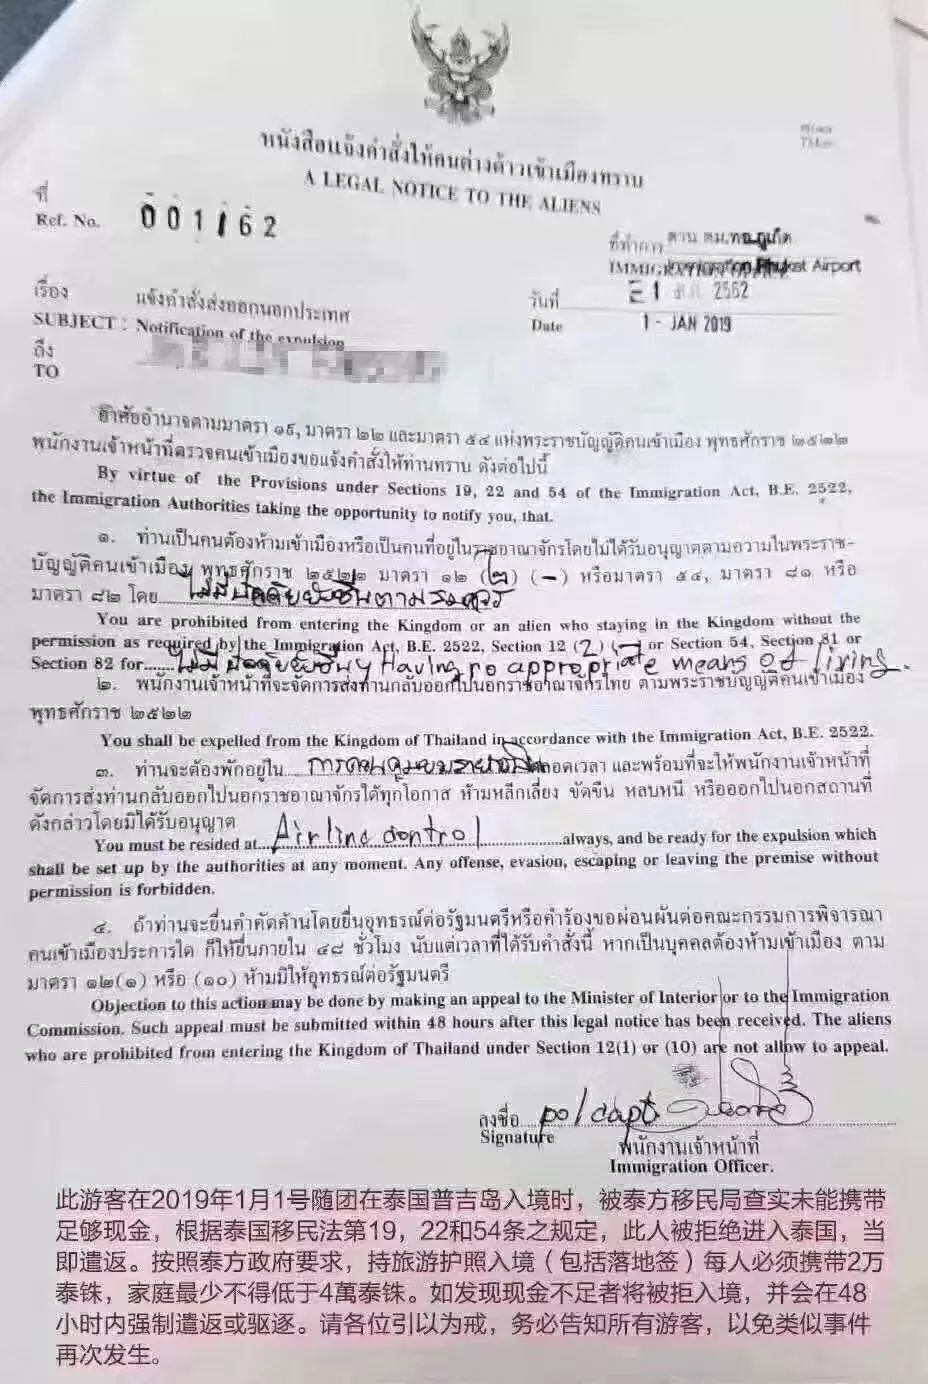 หนังสือแจ้งคำสั่งให้คนต่างด้าวเข้าเมืองทราบ
A LEGAL NOTICE TO THE ALIENS
ที่
Ref. No. 001162
ที่ทำการ ด่าน ตม.ทอ.ภูเก็ต
Phuket Airport
เรื่อง แจ้งคำสั่งส่งออกนอกประเทศ
วันที่ 2562
SUBJECT : Notification of the expulsion
Date 1 - JAN 2019
ถึง
TO
อาศัยอำนาจตามมาตรา ๑๙, มาตรา ๒๒ และมาตรา ๕๔ แห่งพระราชบัญญัติคนเข้าเมือง พุทธศักราช ๒๕๒๒
พนักงานเจ้าหน้าที่ตรวจคนเข้าเมืองขอแจ้งคำสั่งให้ท่านทราบ ดังต่อไปนี้
By virtue of the Provisions under Sections 19, 22 and 54 of the Immigration Act, B.E. 2522,
the Immigration Authorities taking the opportunity to notify you, that.
๑. ท่านเป็นคนต้องห้ามเข้าเมืองหรือเป็นคนที่อยู่ในราชอาณาจักรโดยไม่ได้รับอนุญาตตามความในพระราช-
บัญญัติคนเข้าเมือง พุทธศักราช ๒๕๒๒ มาตรา ๑๒ (๒) (-) หรือมาตรา ๕๔, มาตรา ๘๑ หรือ
มาตรา ๘๒ โดย ไม่มีปัจจัยยังชีพตามสมควร
You are prohibited from entering the Kingdom or an alien who staying in the Kingdom without the
permission as required by the Immigration Act, B.E. 2522, Section 12 (2) (-) or Section 54, Section 81 or
Section 82 for......ไม่มีปัจจัยยังชีพ Having no appropriate means of living.
๒. พนักงานเจ้าหน้าที่จะจัดการส่งท่านกลับออกไปนอกราชอาณาจักรไทย ตามพระราชบัญญัติคนเข้าเมือง
พุทธศักราช ๒๕๒๒
You shall be expelled from the Kingdom of Thailand in accordance with the Immigration Act, B.E. 2522.
๓. ท่านจะต้องพักอยู่ใน ตลอดเวลา และพร้อมที่จะให้พนักงานเจ้าหน้าที่
จัดการส่งท่านกลับออกไปนอกราชอาณาจักรได้ทุกโอกาส ห้ามหลีกเลี่ยง ขัดขืน หลบหนี หรือออกไปนอกสถานที่
ดังกล่าวโดยมิได้รับอนุญาต
You must be resided at Airline control always, and be ready for the expulsion which
shall be set up by the authorities at any moment. Any offense, evasion, escaping or leaving the premise without
permission is forbidden.
๔. ถ้าท่านจะยื่นคำคัดค้านโดยยื่นอุทธรณ์ต่อรัฐมนตรีหรือคำร้องขอผ่อนผันต่อคณะกรรมการพิจารณา
คนเข้าเมืองประการใด ก็ให้ยื่นภายใน ๔๘ ชั่วโมง นับแต่เวลาที่ได้รับคำสั่งนี้ หากเป็นบุคคลต้องห้ามเข้าเมือง ตาม
มาตรา ๑๒(๑) หรือ (๑๐) ห้ามมิให้อุทธรณ์ต่อรัฐมนตรี
Objection to this action may be done by making an appeal to the Minister of Interior or to the Immigration
Commission. Such appeal must be submitted within 48 hours after this legal notice has been received. The aliens
who are prohibited from entering the Kingdom of Thailand under Section 12(1) or (10) are not allow to appeal.
ลงชื่อ pol capt.
Signature
พนักงานเจ้าหน้าที่
Immigration Officer.
此游客在2019年1月1号随团在泰国普吉岛入境时，被泰方移民局查实未能携带
足够现金，根据泰国移民法第19，22和54条之规定，此人被拒绝进入泰国，当
即遣返。按照泰方政府要求，持旅游护照入境（包括落地签）每人必须携带2万
泰铢，家庭最少不得低于4萬泰铢。如发现现金不足者将被拒入境，并会在48
小时内强制遣返或驱逐。请各位引以为戒，务必告知所有游客，以免类似事件
再次发生。